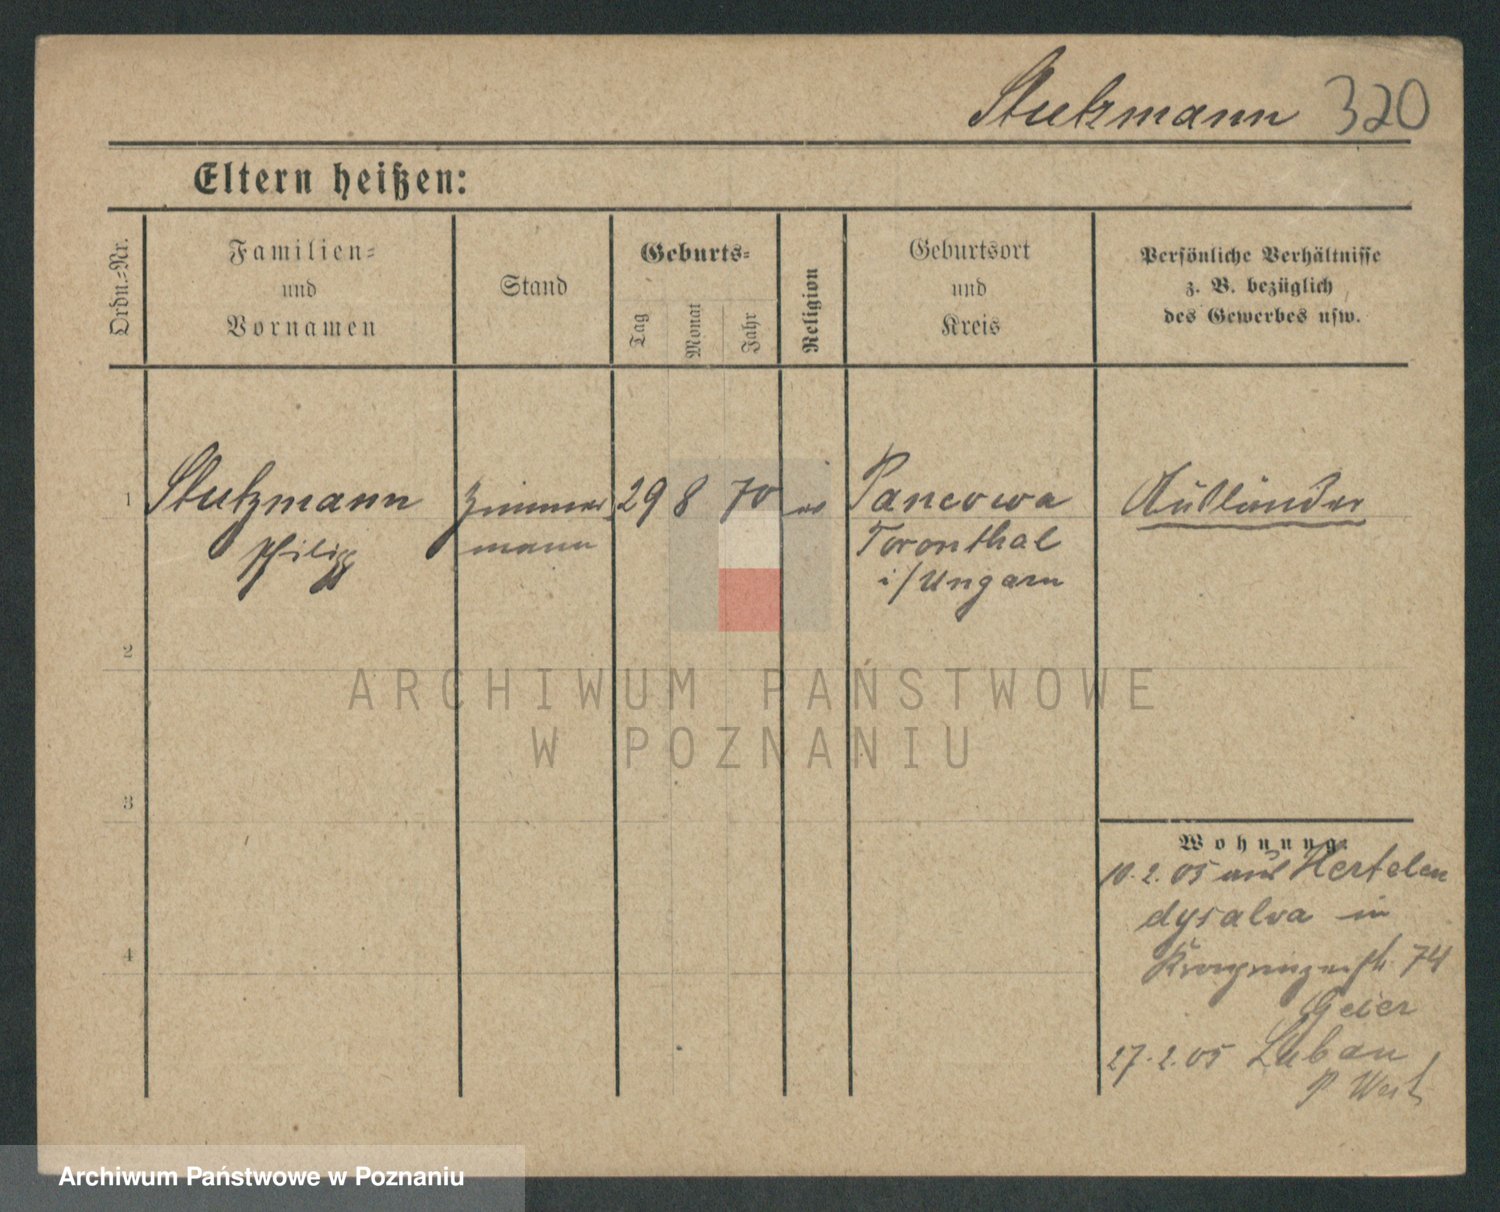 Stutzmann 320
Eltern heißen:
Ordn.-Nr.
Familien-
und
Vornamen
Stand
Geburts-
Tag
Monat
Jahr
Religion
Geburtsort
und
Kreis
Persönliche Verhältnisse
z. B. bezüglich
des Gewerbes usw.
1 Stutzmann Zimmer- 29 8 70 Pancowa Ausländer
Philipp mann Toronthal
i/Ungarn
2
3
4
Wohnung:
10.2.05 aus Hertelen
dysalva in
Kronprinzenstr. 74
Geier
27.2.05 Luban
P. West
ARCHIWUM PAŃSTWOWE
W POZNANIU
Archiwum Państwowe w Poznaniu